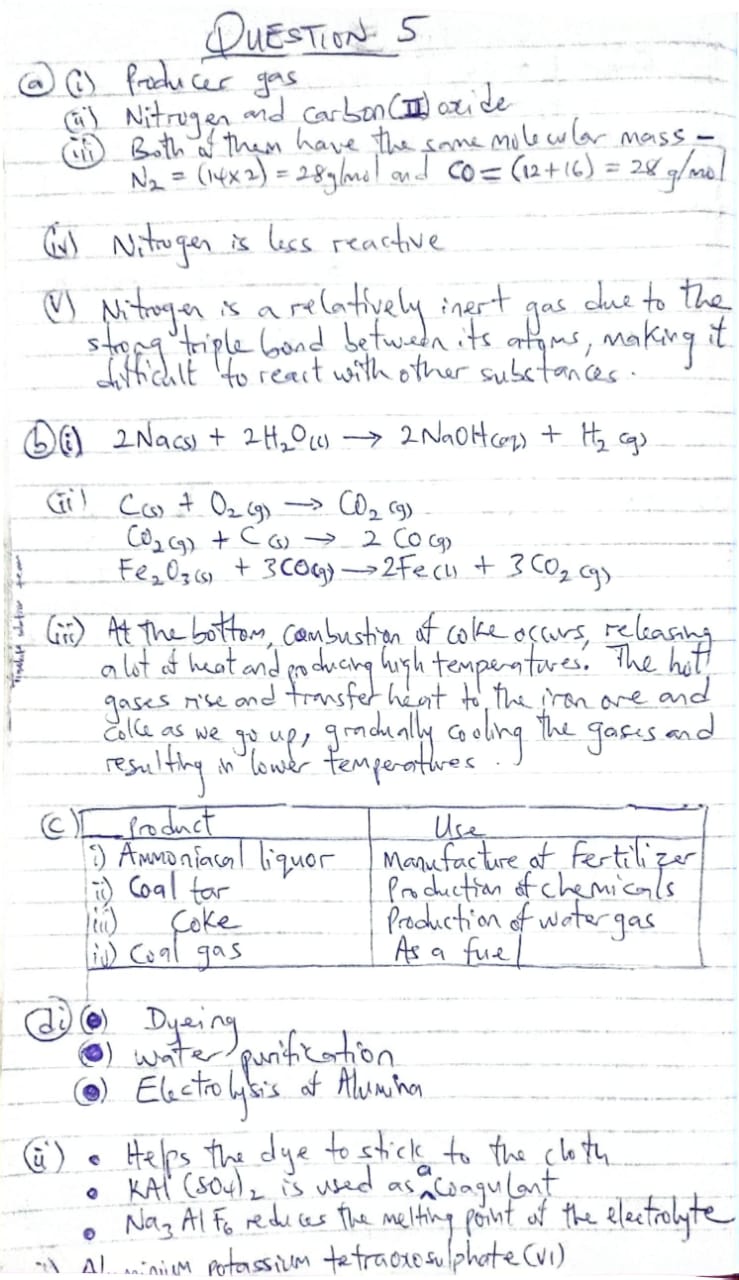 QUESTION 5
(a) (i) Producer gas
(ii) Nitrogen and carbon(II) oxide
(iii) Both of them have the same molecular mass -
N₂ = (14x2) = 28g/mol and CO = (12+16) = 28 g/mol
(iv) Nitrogen is less reactive
(v) Nitrogen is a relatively inert gas due to the
strong triple bond between its atoms, making it
difficult to react with other substances.
(b)(i) 2Na(s) + 2H₂O(l) → 2NaOH(aq) + H₂(g)
(ii) C(s) + O₂(g) → CO₂(g)
CO₂(g) + C(s) → 2CO(g)
Fe₂O₃(s) + 3CO(g) → 2Fe(l) + 3CO₂(g)
(iii) At the bottom, combustion of coke occurs, releasing
a lot of heat and producing high temperatures. The hot
gases rise and transfer heat to the iron ore and
coke as we go up, gradually cooling the gases and
resulting in lower temperatures.
(c) Product Use
i) Ammoniacal liquor Manufacture of Fertilizer
ii) Coal tar Production of chemicals
iii) Coke Production of water gas
iv) Coal gas As a fuel
(di) Dyeing
water purification
Electrolysis of Alumina
(ii) • Helps the dye to stick to the cloth
• KAl(SO₄)₂ is used as a coagulant
• Na₃AlF₆ reduces the melting point of the electrolyte
potassium tetraoxosulphate(VI)